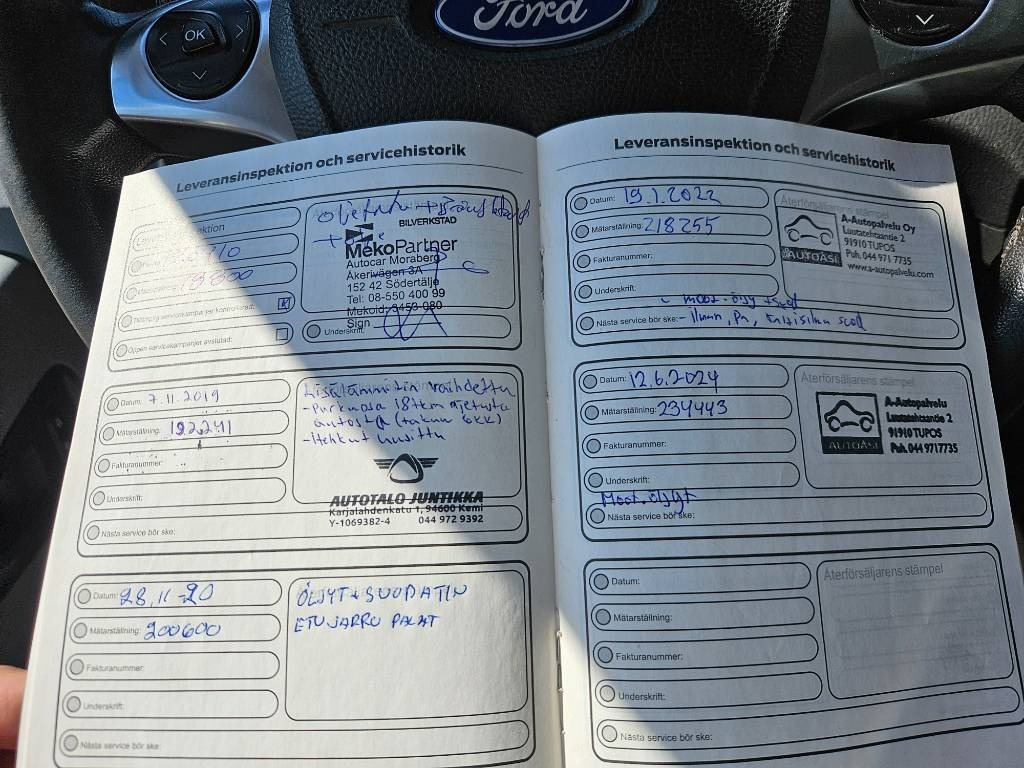 OK
Ford
Leveransinspektion och servicehistorik
BILVERKSTAD
MekoPartner
Autocar Moraberg
Åkerivägen 3A
152 42 Södertälje
Tel: 08-550 400 99
Mekoid: 3453 080
Sign
Underskrift:
Datum: 7.11.2019
Mätarställning: 192241
Fakturanummer:
Underskrift:
Nästa service bör ske:
Lisälämmitin vaihdettu
- Purkuosa 18tkm ajetusta
autosta (takuu 6kk)
- Hehkut uusittu
AUTOTALO JUNTIKKA
Karjalahdenkatu 1, 94600 Kemi
Y-1069382-4 044 972 9392
Datum: 28.11-20
Mätarställning: 200600
Fakturanummer:
Underskrift:
Nästa service bör ske:
ÖLJYT + SUODATIN
ETUJARRU PALAT
Leveransinspektion och servicehistorik
Datum: 19.1.2022
Mätarställning: 218255
Fakturanummer:
Underskrift:
moot.öljy + suod
Nästa service bör ske: - ilman, Pa, raitisilma suod
Återförsäljarens stämpel
AUTOASI
A-Autopalvelu Oy
Luutatehtaantie 2
91910 TUPOS
Puh. 044 971 7735
www.a-autopalvelu.com
Datum: 12.6.2024
Mätarställning: 234443
Fakturanummer:
Underskrift:
Moot.öljyt
Nästa service bör ske:
Återförsäljarens stämpel
AUTOASI
A-Autopalvelu
Luutatehtaantie 2
91910 TUPOS
Puh. 044 9717735
Datum:
Mätarställning:
Fakturanummer:
Underskrift:
Nästa service bör ske:
Återförsäljarens stämpel